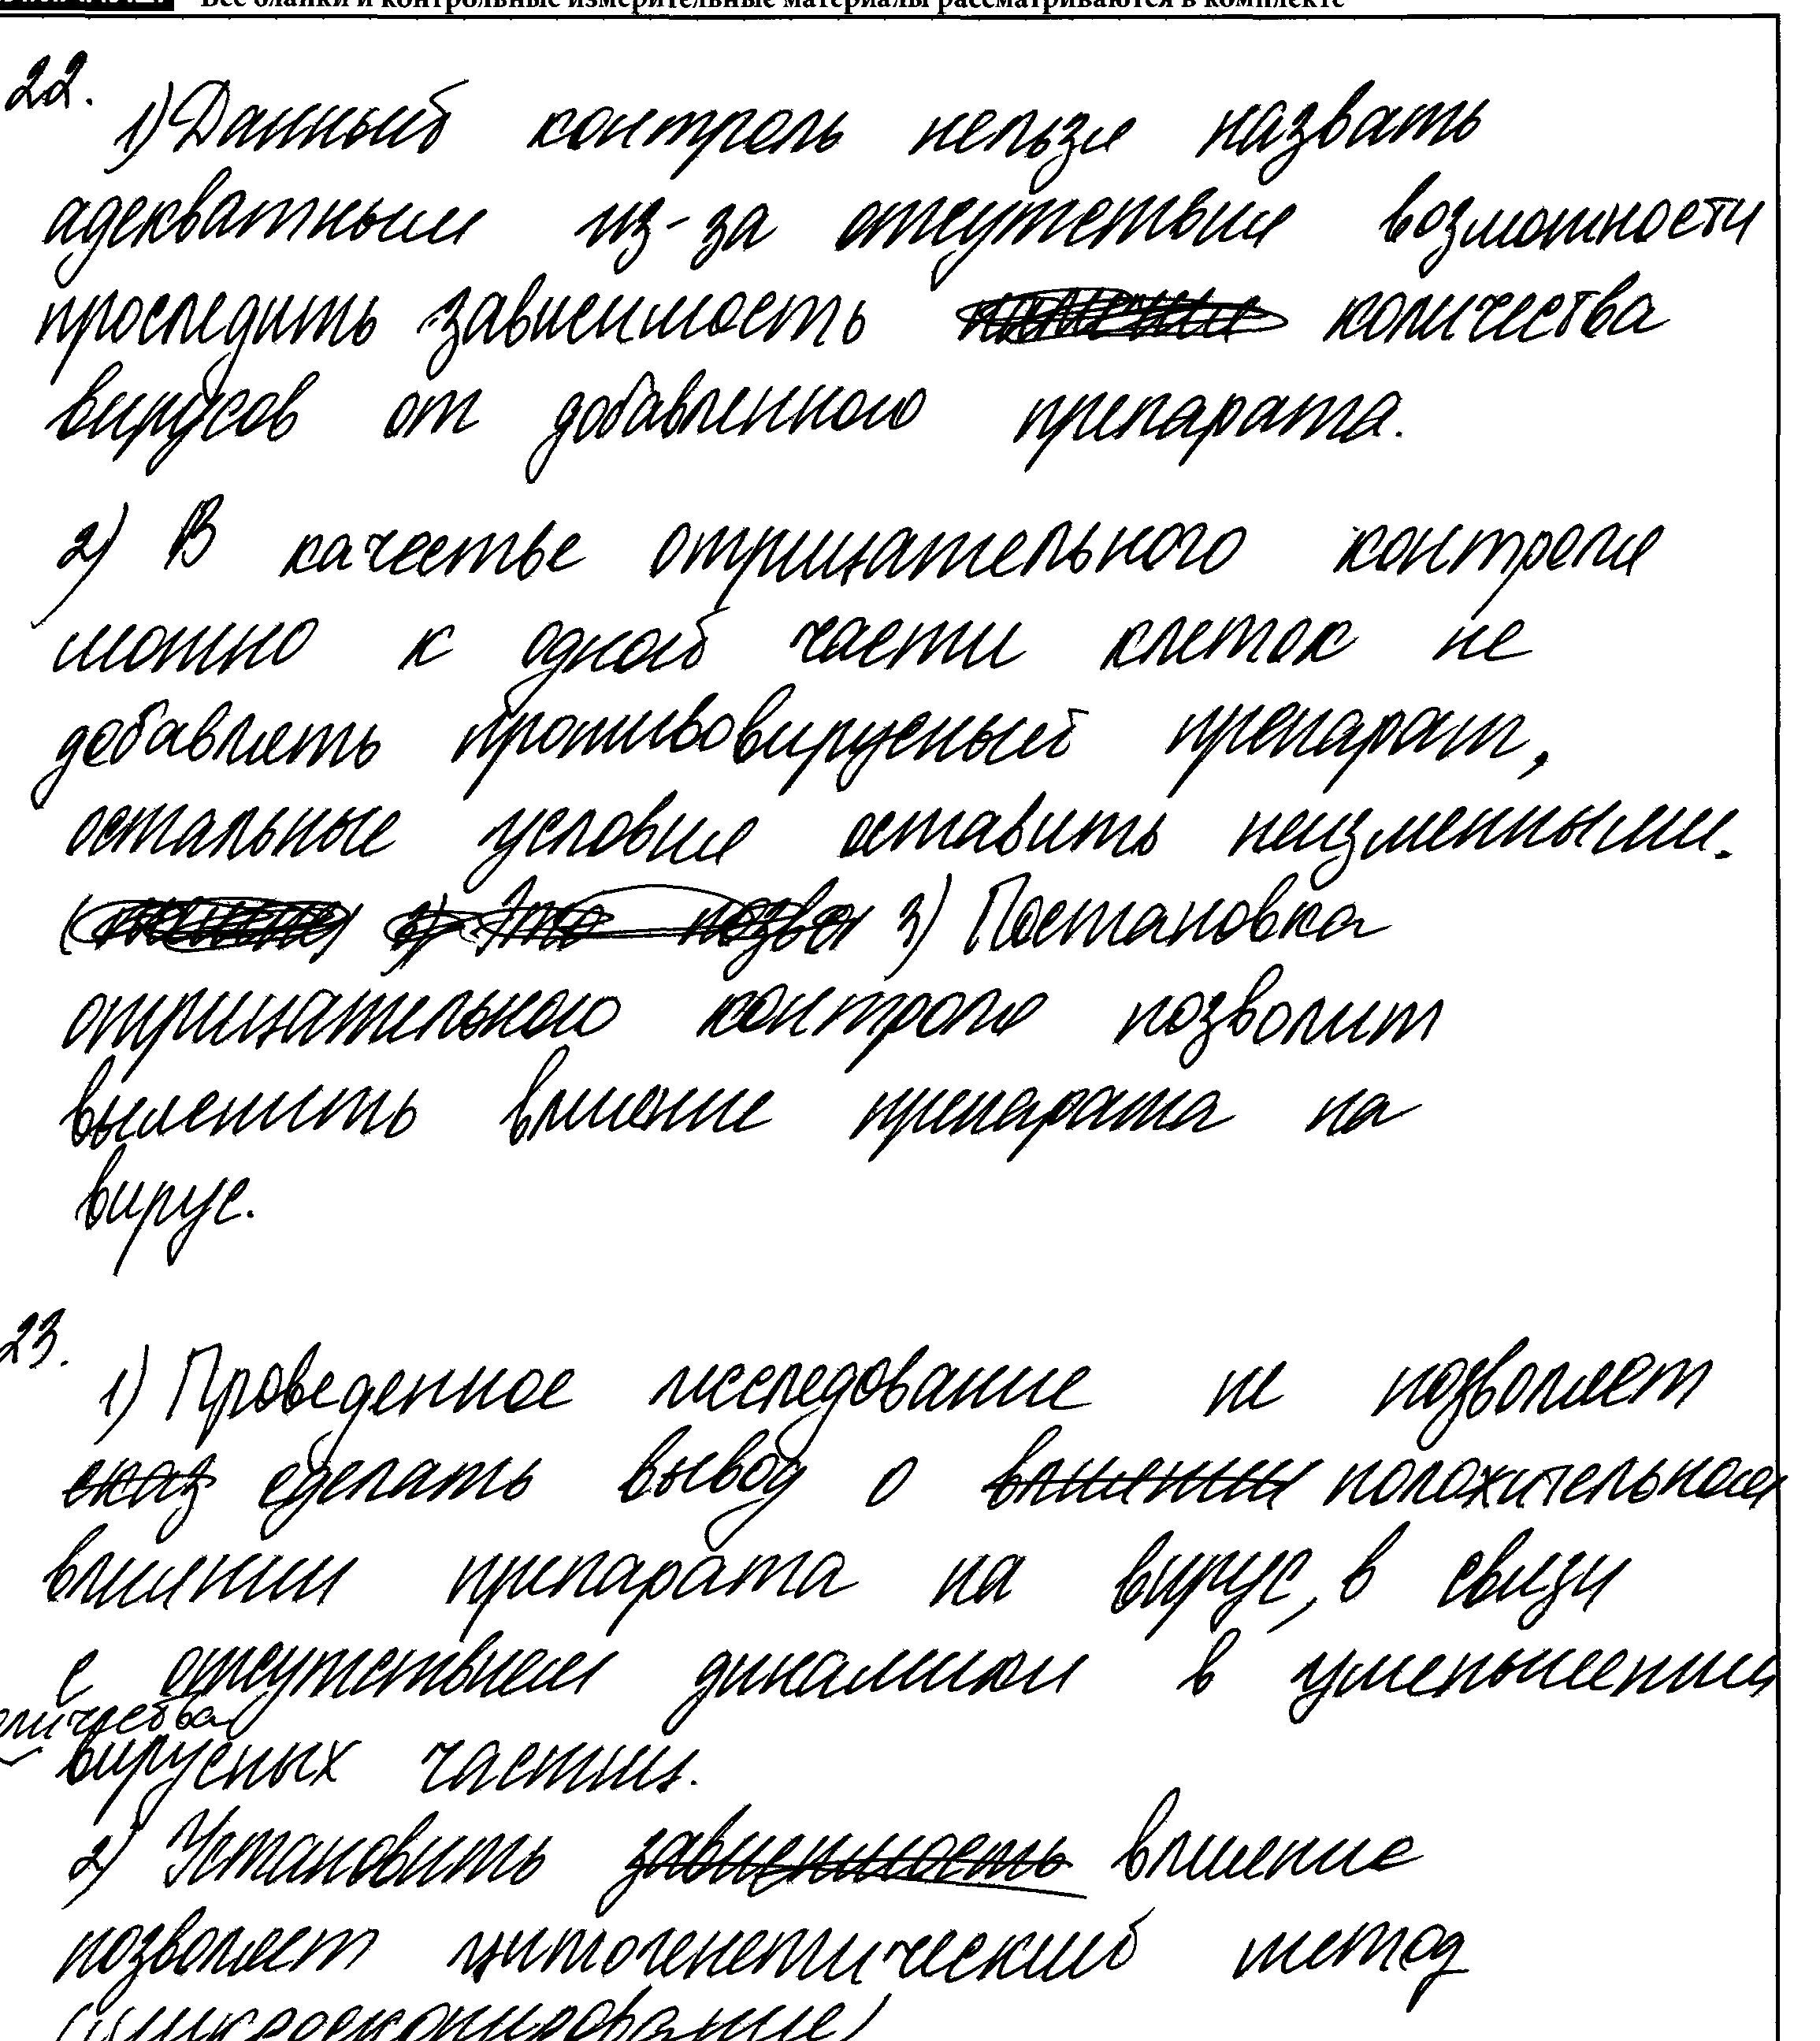 Все бланки и контрольные измерительные материалы рассматриваются в комплекте
22.
1) Данный контроль нельзя назвать
адекватным из-за отсутствия возможности
проследить зависимость количества
вирусов от добавленного препарата.
2) В качестве отрицательного контроля
можно к одной части клеток не
добавлять противовирусный препарат,
остальные условия оставить неизменными.
3) Это позво 3) Постановка
отрицательного контроля позволит
выяснить влияние препарата на
вирус.
23.
1) Проведенное исследование не позволяет
сказ сделать вывод о влиянии положительном
влиянии препарата на вирус, в связи
с отсутствием динамики в уменьшении
количества
вирусных частиц.
2) Установить зависимость влияние
позволяет цитогенетический метод
(микроскопирование)